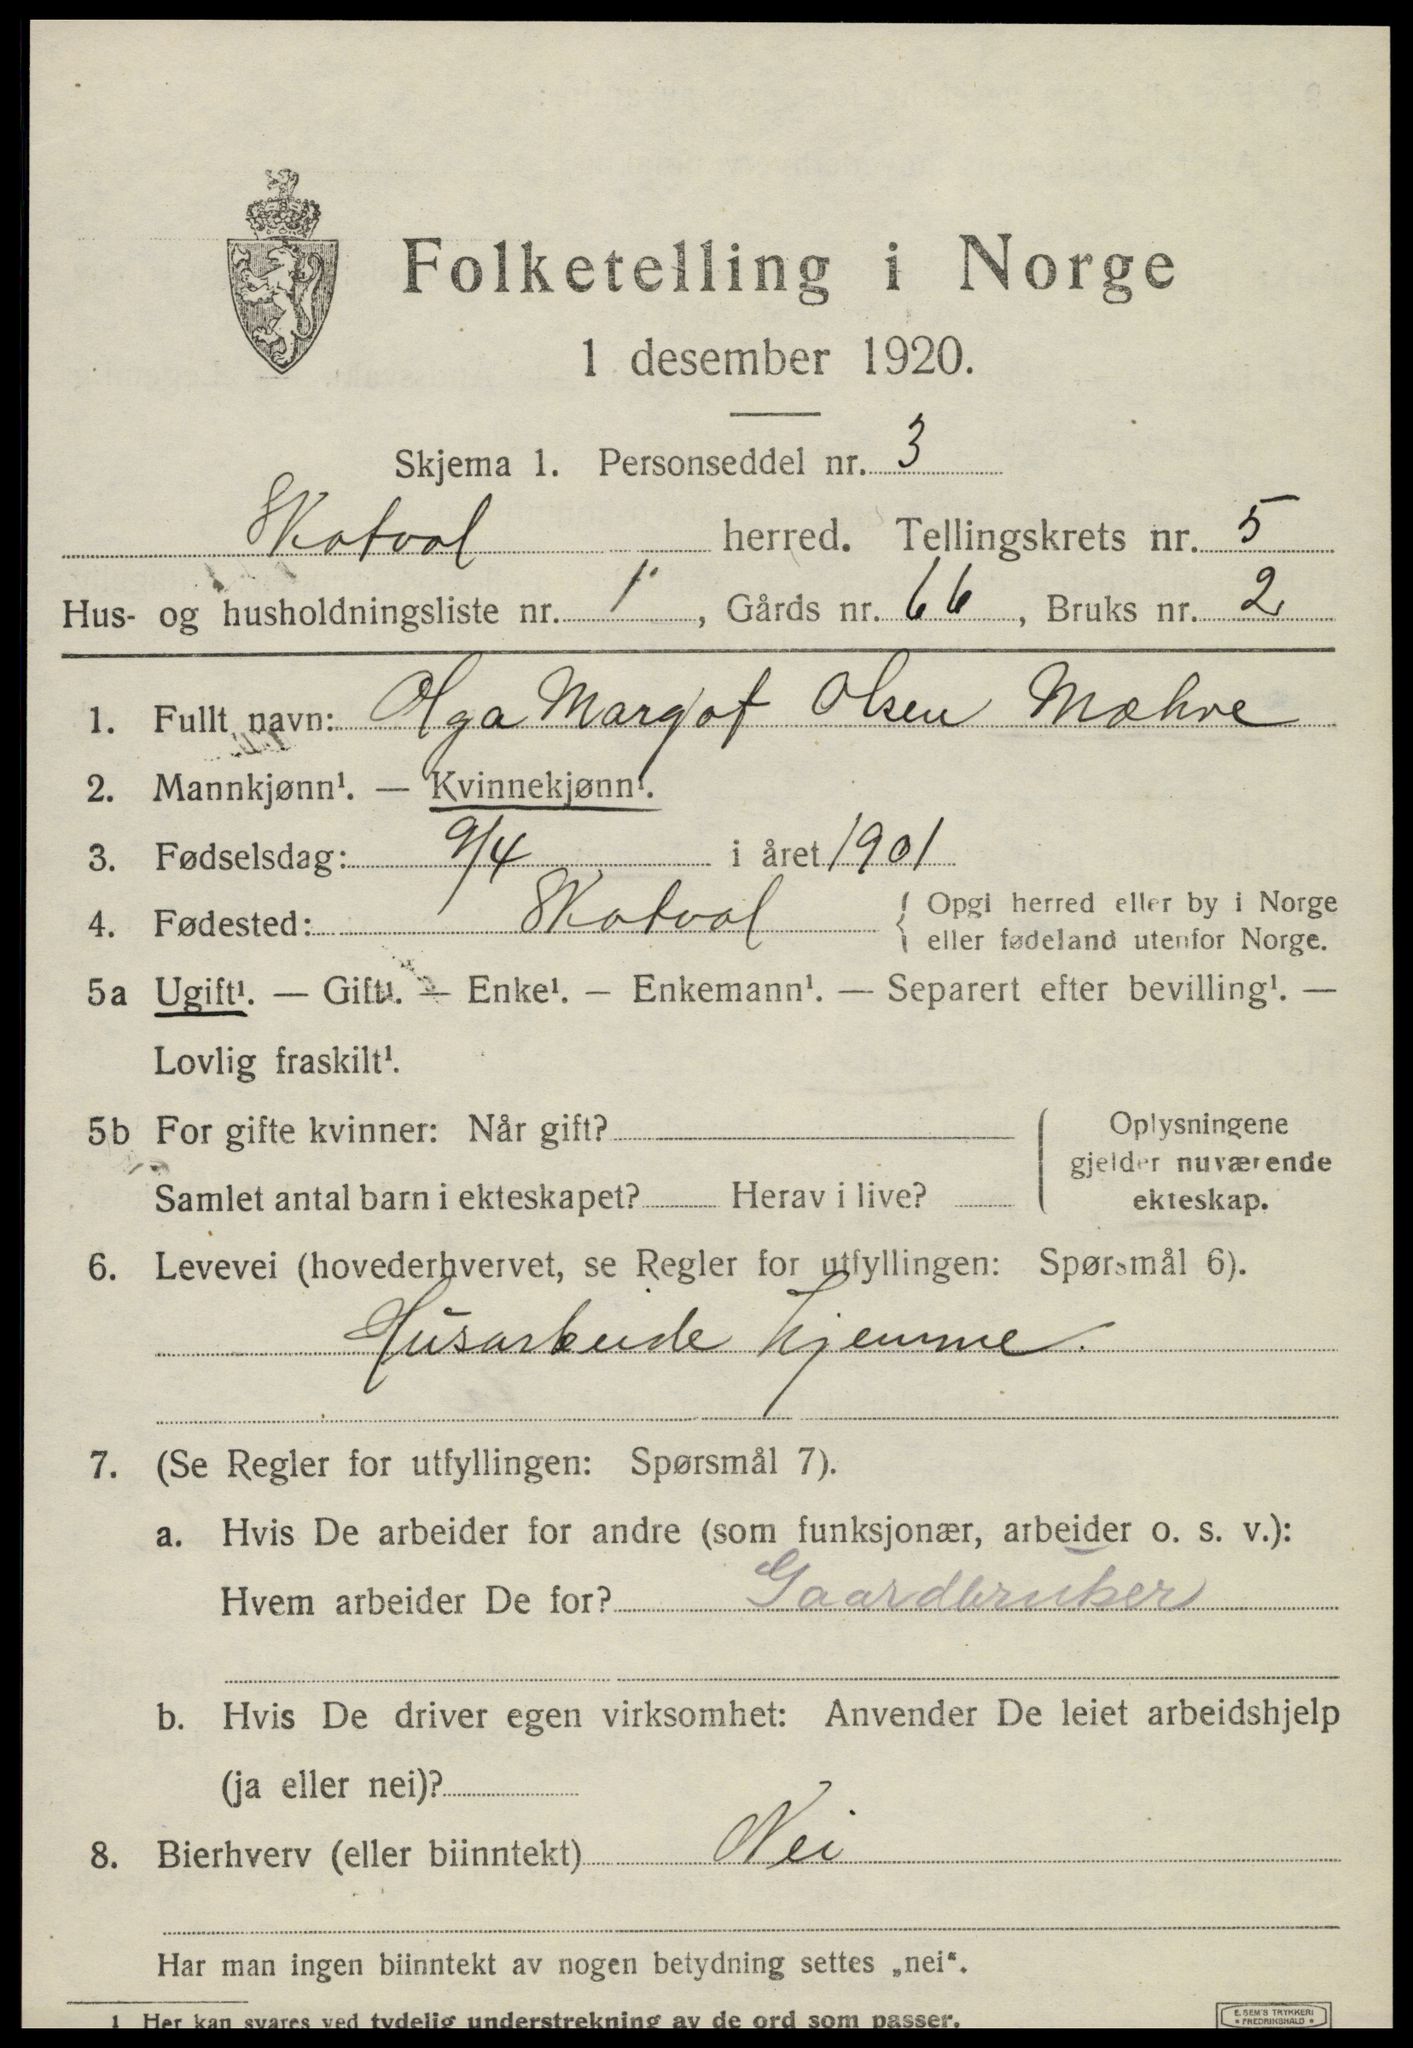 Folketelling i Norge
1 desember 1920.
Skjema 1. Personseddel nr. 3
Skatval herred. Tellingskrets nr. 5
Hus- og husholdningsliste nr. 1, Gårds nr. 66, Bruks nr. 2
1. Fullt navn: Olga Margot Olsen Mæhre
2. Mannkjønn¹. — Kvinnekjønn¹.
3. Fødselsdag: 9/4 i året 1901
4. Fødested: Skatval { Opgi herred eller by i Norge
eller fødeland utenfor Norge.
5a Ugift¹. — Gift¹. — Enke¹. — Enkemann¹. — Separert efter bevilling¹. —
Lovlig fraskilt¹.
5b For gifte kvinner: Når gift?
Samlet antal barn i ekteskapet? Herav i live?
Oplysningene
gjelder nuværende
ekteskap.
6. Levevei (hovederhvervet, se Regler for utfyllingen: Spørsmål 6).
Husarbeide hjemme.
7. (Se Regler for utfyllingen: Spørsmål 7).
a. Hvis De arbeider for andre (som funksjonær, arbeider o. s. v.):
Hvem arbeider De for? Gaardbruker
b. Hvis De driver egen virksomhet: Anvender De leiet arbeidshjelp
(ja eller nei)?
8. Bierhverv (eller biinntekt) Nei
Har man ingen biinntekt av nogen betydning settes „nei“.
1 Her kan svares ved tydelig understrekning av de ord som passer.
E. SEM'S TRYKKERI
FREDRIKSHALD